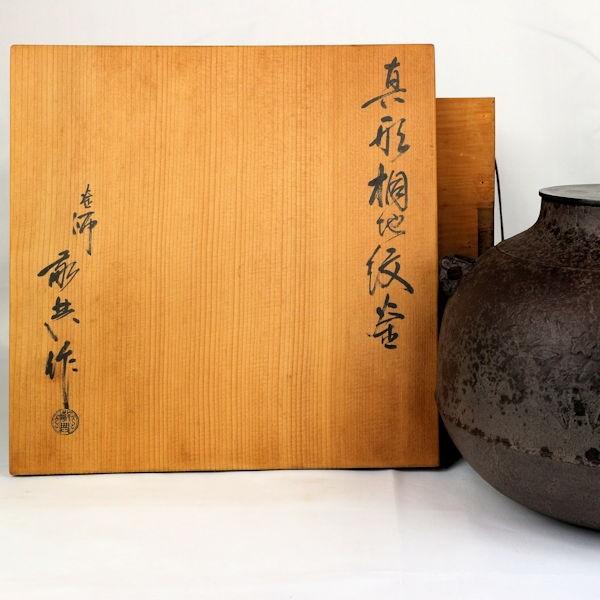 真形桐地紋釜
釜師
敬典作